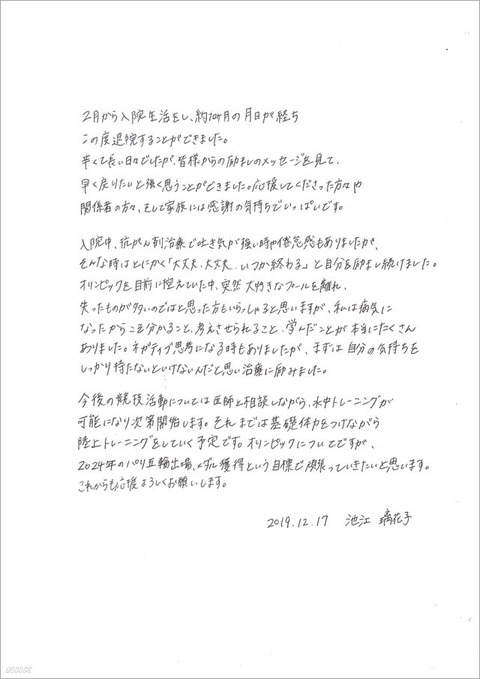 2月から入院生活をし、約10ヶ月の月日が経ち
この度退院することができました。
辛くて長い日々でしたが、皆様からの励ましのメッセージを見て、
早く戻りたいと強く思うことができました。応援してくださった方々や
関係者の方々、そして家族には感謝の気持ちでいっぱいです。
入院中、抗がん剤治療で吐き気が強い時や倦怠感もありましたが、
そんな時はとにかく「大丈夫、大丈夫、いつか終わる」と自分を励まし続けました。
オリンピックを目前に控えていた中、突然大好きなプールを離れ、
失ったものが多いのではと思った方もいらっしゃると思いますが、私は病気に
なったからこそ分かること、考えさせられること、学んだことが本当にたくさん
ありました。ネガティブ思考になる時もありましたが、まずは自分の気持ちを
しっかり持たないといけないんだと思い治療に励みました。
今後の競技活動については医師と相談しながら、水中トレーニングが
可能になり次第開始します。それまでは基礎体力をつけながら
陸上トレーニングをしていく予定です。オリンピックについてですが、
2024年のパリ五輪出場、メダル獲得という目標で頑張っていきたいと思います。
これからも応援よろしくお願いします。
2019.12.17 池江 璃花子